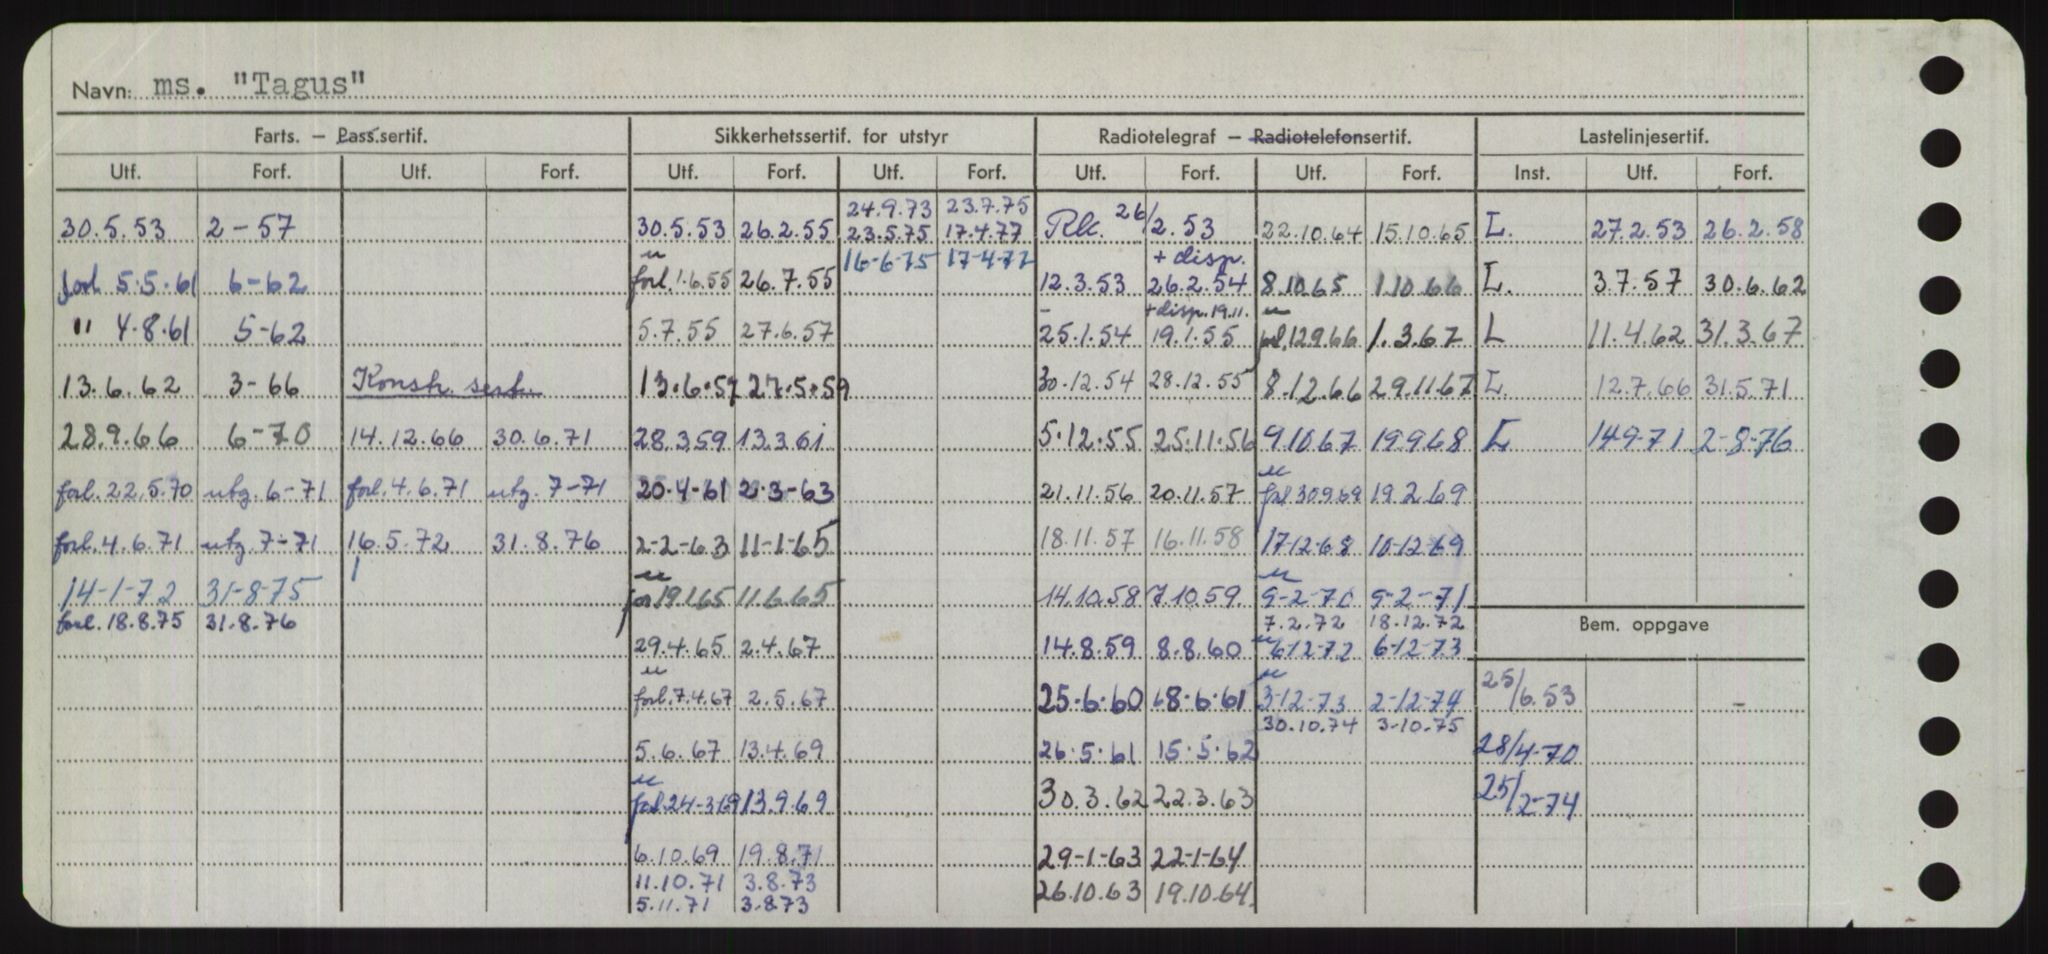 Navn: ms. "Tagus"
Farts. — Pass.sertif. Sikkerhetssertif. for utstyr Radiotelegraf — Radiotelefonsertif. Lastelinjesertif.
Utf. Forf. Utf. Forf. Utf. Forf. Utf. Forf. Utf. Forf. Utf. Forf. Inst. Utf. Forf.
24.9.73 23.7.75
30.5.53 2-57 30.5.53 26.2.55 23.5.75 17.4.77 Rk. 26/2.53 22.10.64 15.10.65 L. 27.2.53 26.2.58
16-6-75 17-4-77 + disp.
forl. 5.5.61 6-62 forl. 1.6.55 26.7.55 12.3.53 26.2.54 8.10.65 1.10.66 L. 3.7.57 30.6.62
+ disp. 19.11.
" 4.8.61 5-62 5.7.55 27.6.57 25.1.54 19.1.55 forl. 12.9.66 1.3.67 L 11.4.62 31.3.67
13.6.62 3-66 Konstr. sert. 13.6.57 27.5.59 30.12.54 28.12.55 8.12.66 29.11.67 L. 12.7.66 31.5.71
28.9.66 6-70 14.12.66 30.6.71 28.3.59 13.3.61 5.12.55 25.11.56 9.10.67 19.9.68 L 14-9-71 2-8-76
forl. 22.5.70 utg. 6-71 forl. 4.6.71 utg. 7-71 20-4-61 2-3-63 21.11.56 20.11.57 forl 30.9.69 19.2.69
forl. 4.6.71 utg 7-71 16.5.72 31.8.76 2-2-63 11-1-65 18.11.57 16.11.58 17-12-68 10-12-69
14-1-72 31-8-75 for 19.1.65 11.6.65 14.10.58 7.10.59. 9-2-70 9-2-71
forl. 18.8.75 31.8.76 7.2.72 18.12.72 Bem. oppgave
29.4.65 2.4.67 14.8.59 8.8.60 6-12-72 6-12-73
forl. 7.4.67 2.5.67 25.6.60 18.6.61 3-12-73 2-12-74 25/6.53
30.10.74 3-10.75
5.6.67 13.4.69 26.5.61 15.5.62 28/4-70
forl. 24-3-69 13.9.69 30.3.62 22.3.63 25/2-74
6.10.69 19.8.71 29-1-63 22-1-64
11.10.71 3.8.73 26.10.63 19.10.64.
5.11.71 3.8.73